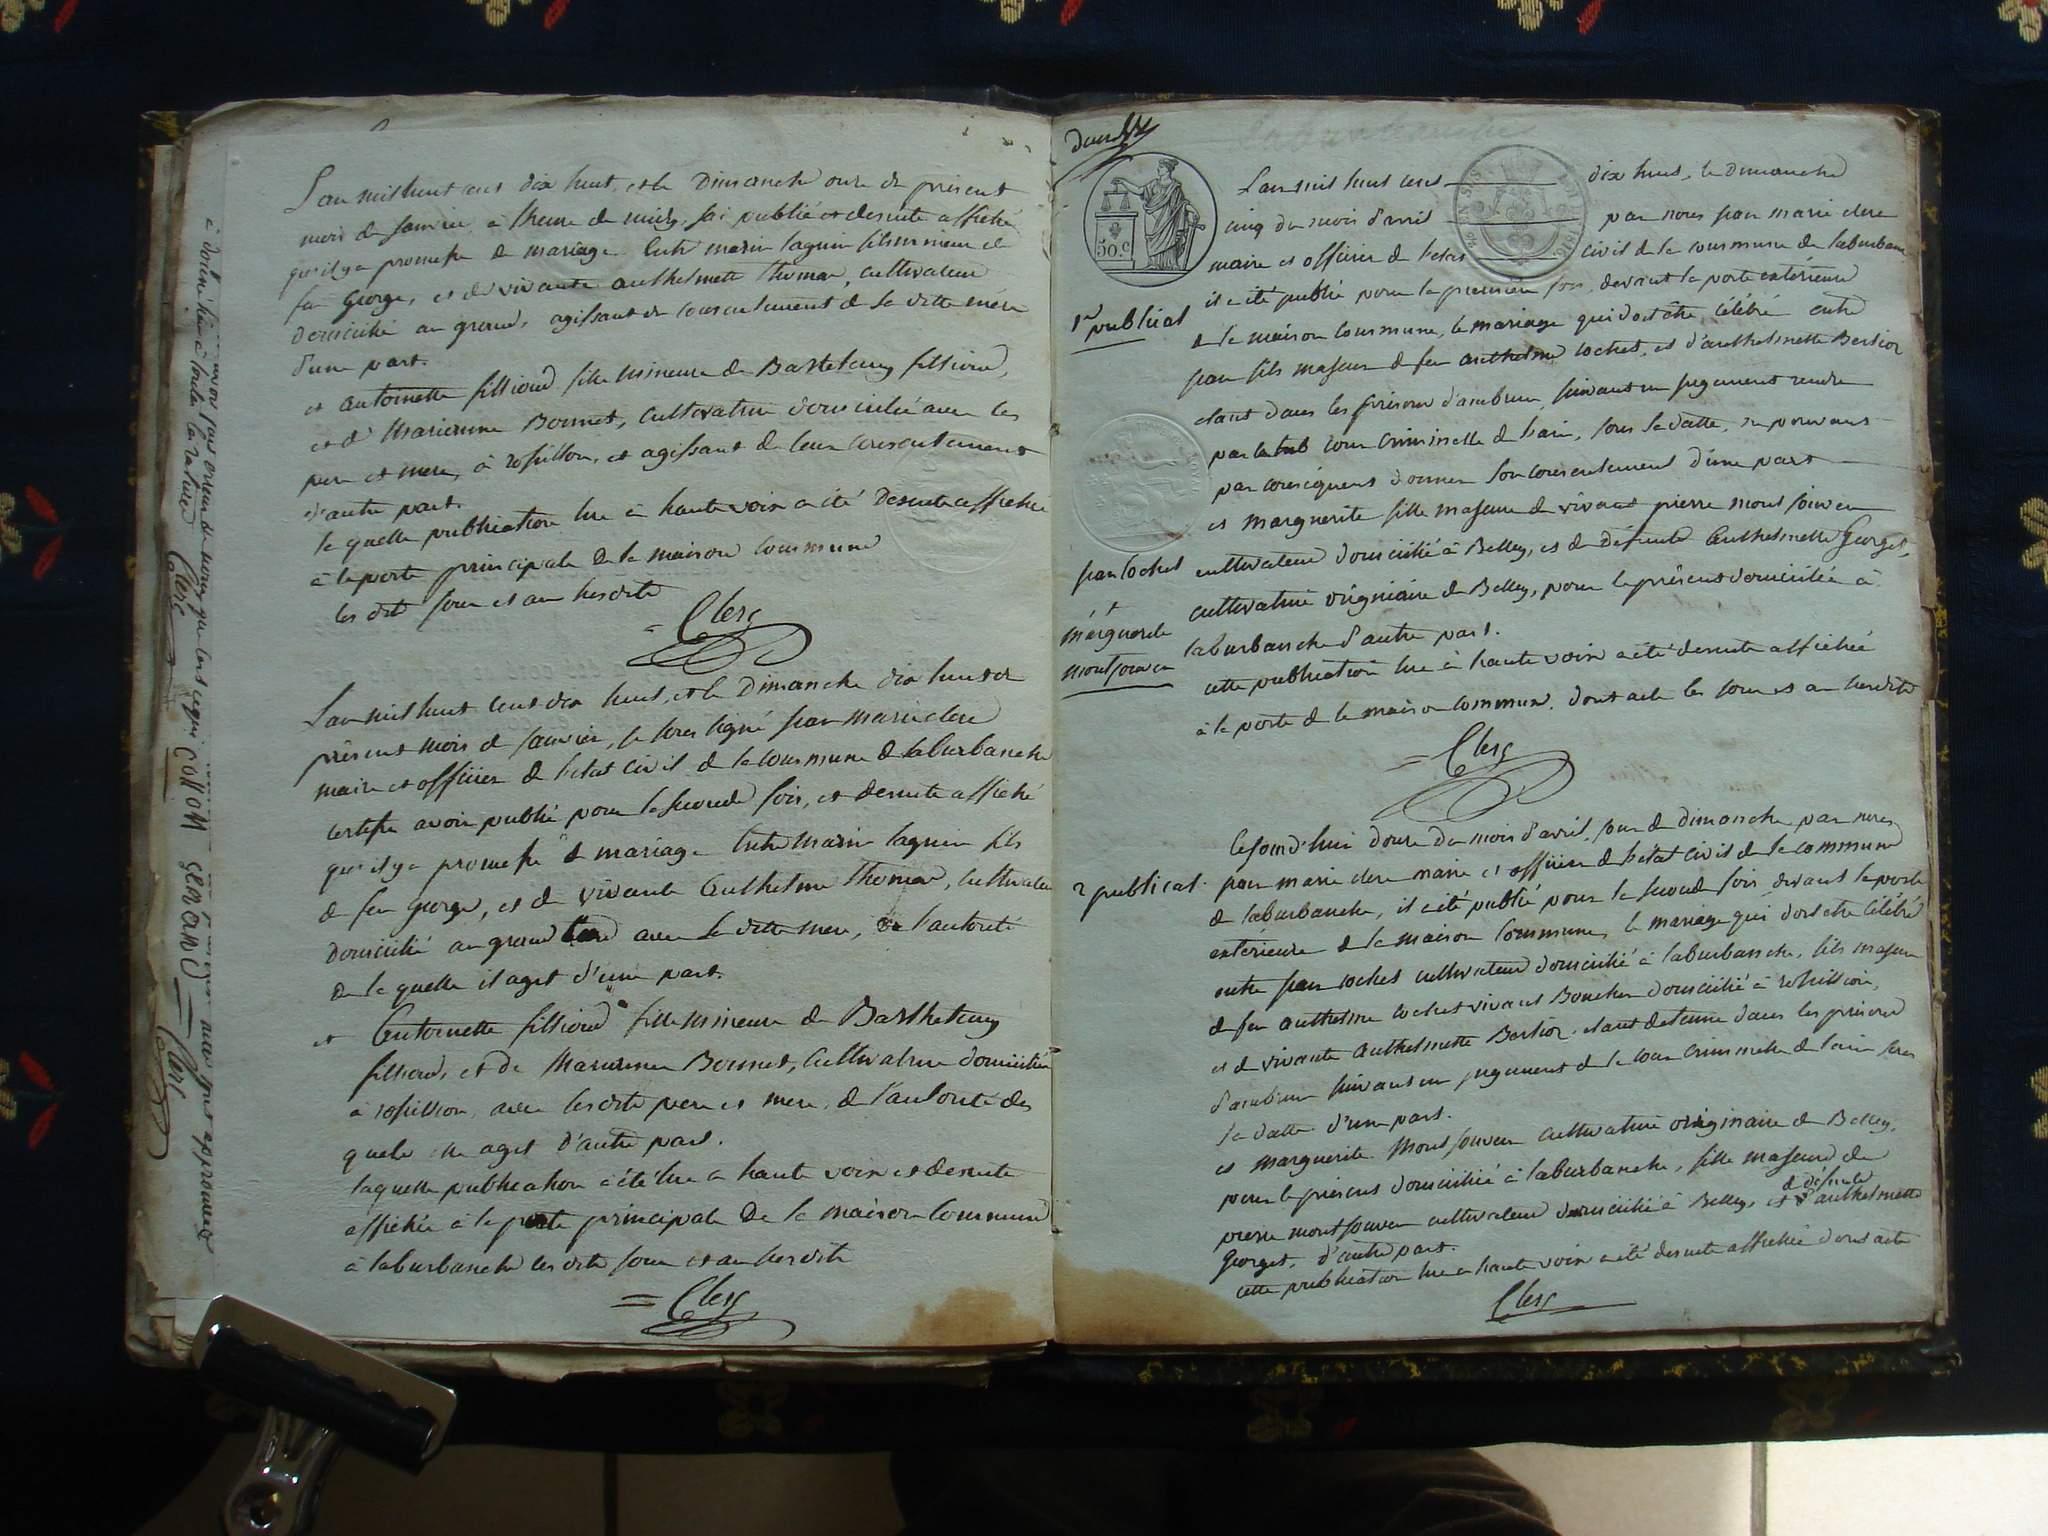 L'an mil huit cens dix huit, et le Dimanche onze du présent
mois de Janvier à l'heure de midy, j'ai publié et desuite affiché
qu'il y a promesse de mariage Entre marin laguin fils mineur de
feu George, et de vivante anthelmette thomas, cultivateur
domicilié au grand, agissant du consentement de sa ditte mére
d'une part.
et antoinette fillioud fille mineure de Bartelemy fillioud,
et d' Marienne Bonnet, cultivatrice domiciliée avec les
pere et mere, à rossillon, et agissant de leur consentement
d'autre part.
la quelle publication lue à haute voix a été Desuite affichée
à la porte principale De la maison Commune
les dits jour et an susdits
= Clerc
L'an mil huit cent dix huit, et le Dimanche dix huit du
présent mois de Janvier, je sousigné jean marie clerc
maire et officier de l'etat civil de la commune de laburbanche
certifie avoir publié pour la seconde fois, et desuite affiché
qu'il y a promesse de mariage Entre Marin laguin fils
de feu george, et de vivante Anthelme thomas, Cultivateur
domicilié au grand avec sa ditte mere, de l'autorité
de la quelle il agit d'une part.
et Antoinette fillioud fille mineure de Barthelemy
fillioud, et de Marienne Bonnet, Cultivatrice domiciliée
à rossillon avec lesdits pere et mere, de l'autorité des
quels elle agit d'autre part.
laquelle publication a été lue a haute voix et desuite
affichée à la porte principale De la maison Commune
à laburbanche les dits jour et an susdits
= Clerc
Collom gerand = Clerc
Clerc
douze
50.c
L'an mil huit cens dix huit, le dimanche
cinq du mois d'avril par nous jean marie clerc
maire et officier de l'etat civil de la commune de laburbanche
il a été publié pour la premiere fois, devant la porte extérieure
1re publicat
de la maison Commune, le mariage qui doit être célébré entre
jean fils majeur de feu anthelme cochet, et d'anthelmette Berlioz
etant dans les prisons d'ambrun suivant un jugement rendu
par la cour Criminelle de l'ain, sous sa datte, ne pouvant
par conséquent donner son consentement d'une part
et Marguerite fille majeure de vivant pierre montjouvent
cultivateur domicilié à Belley, et de Défunte Anthelmette Georget,
jean Cochet
et
marguerite
montjouven
cultivatrice originaire de Belley, pour le présent domiciliée à
laburbanche d'autre part.
cette publication lue à haute voix a été desuite affichée
à la porte de la maison Commune, dont acte les jour et an susdits
= Clerc
Cejourd'hui douze du mois d'avril, jour de dimanche par nous
2 publicat.
jean marie clerc maire et officier de l'état civil de la commune
de laburbanche, il a été publié pour la seconde fois devant la porte
extérieure de la maison Commune, le mariage qui doit etre célébré
entre jean cochet cultivateur domicilié à laburbanche, fils majeur
de feu anthelme cochet vivant Boucher domicilié à rossillon,
et de vivante Anthelmette Berlioz, etant detenue dans les prisons
d'ambrun suivant un jugement de la cour Criminelle de l'ain sous
sa datte d'une part.
et Marguerite Montjouven cultivatrice originaire de Belley,
pour le présent domiciliée à laburbanche, fille majeure de
pierre montjouven cultivateur domicilié à Belley, et de défunte anthelmette
Georget, d'autre part.
cette publication lue a haute voix a été desuite affichée dont acte
Clerc